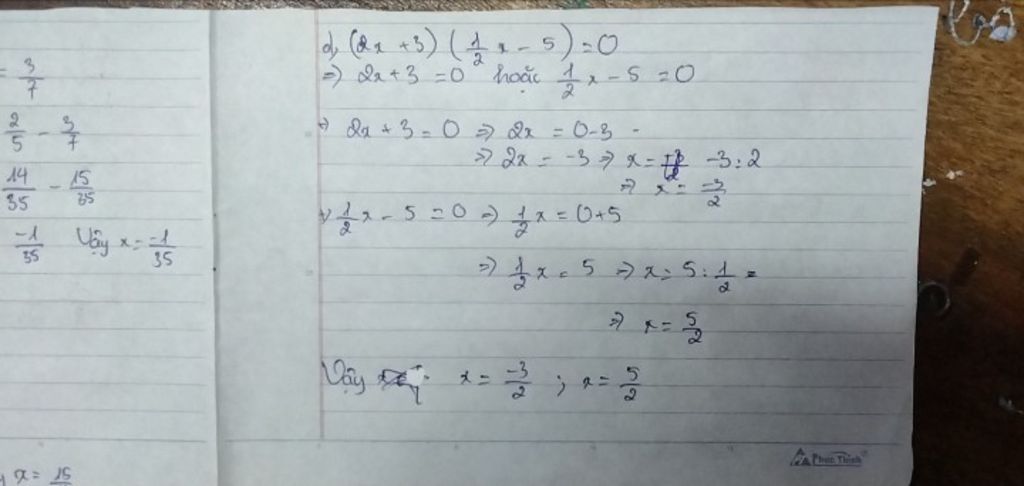 = 3/7
2/5 - 3/7
14/35 - 15/35
-1/35 Vậy x = -1/35
x = 15
d, (2x + 3) (1/2 x - 5) = 0
=> 2x + 3 = 0 hoặc 1/2 x - 5 = 0
=> 2x + 3 = 0 => 2x = 0-3
=> 2x = -3 => x = -3 : 2
=> x = -3/2
=> 1/2 x - 5 = 0 => 1/2 x = 0+5
=> 1/2 x = 5 => x = 5 : 1/2 =
=> x = 5/2
Vậy x = -3/2 ; x = 5/2
Phúc Thịnh